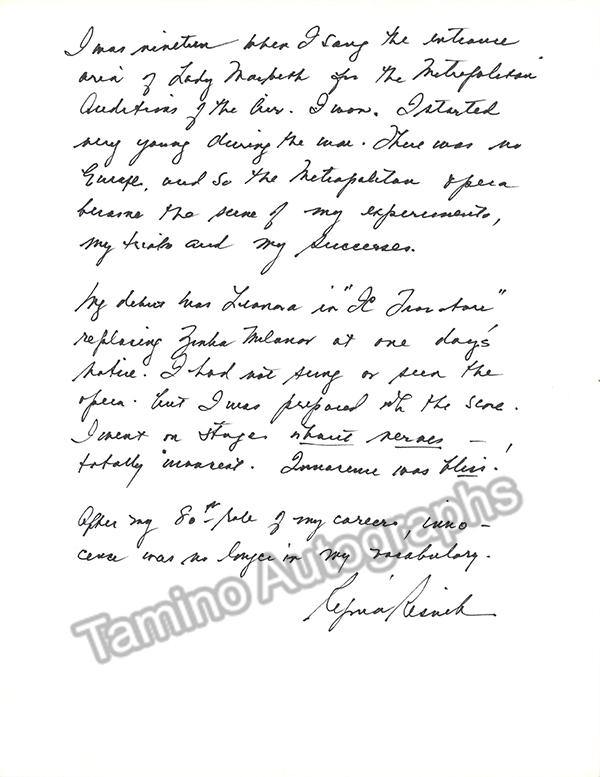 I was nineteen when I sang the entrance
aria of Lady Macbeth for the Metropolitan
Auditions of the Air. I won. I started
very young during the war. There was no
Europe, and so the Metropolitan opera
became the scene of my experiments,
my trials and my successes.
My debut was Leonora in "Il Trovatore"
replacing Zinka Milanov at one day's
notice. I had not sung or seen the
opera. but I was prepared with the score.
I went on stage without nerves —
totally innocent. Innocence was bliss!
After my 80th role of my career, inno-
cence was no longer in my vocabulary.
Regina Resnik
Tamino Autographs